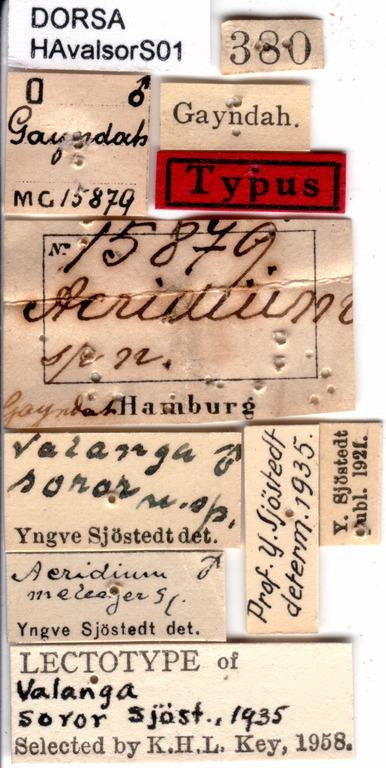 DORSA
HAvalsorS01
380
O ♂
Gayndah
MG 15879
Gayndah.
Typus
No 15879
Acridium
sp. n.
Gayndah Hamburg
Valanga ♂
soror n. sp.
Yngve Sjöstedt det.
Prof. Y. Sjöstedt
determ. 1935.
Y. Sjöstedt
publ. 1921.
Acridium ♂
Yngve Sjöstedt det.
LECTOTYPE of
Valanga
soror Sjöst., 1935
Selected by K.H.L. Key, 1958.